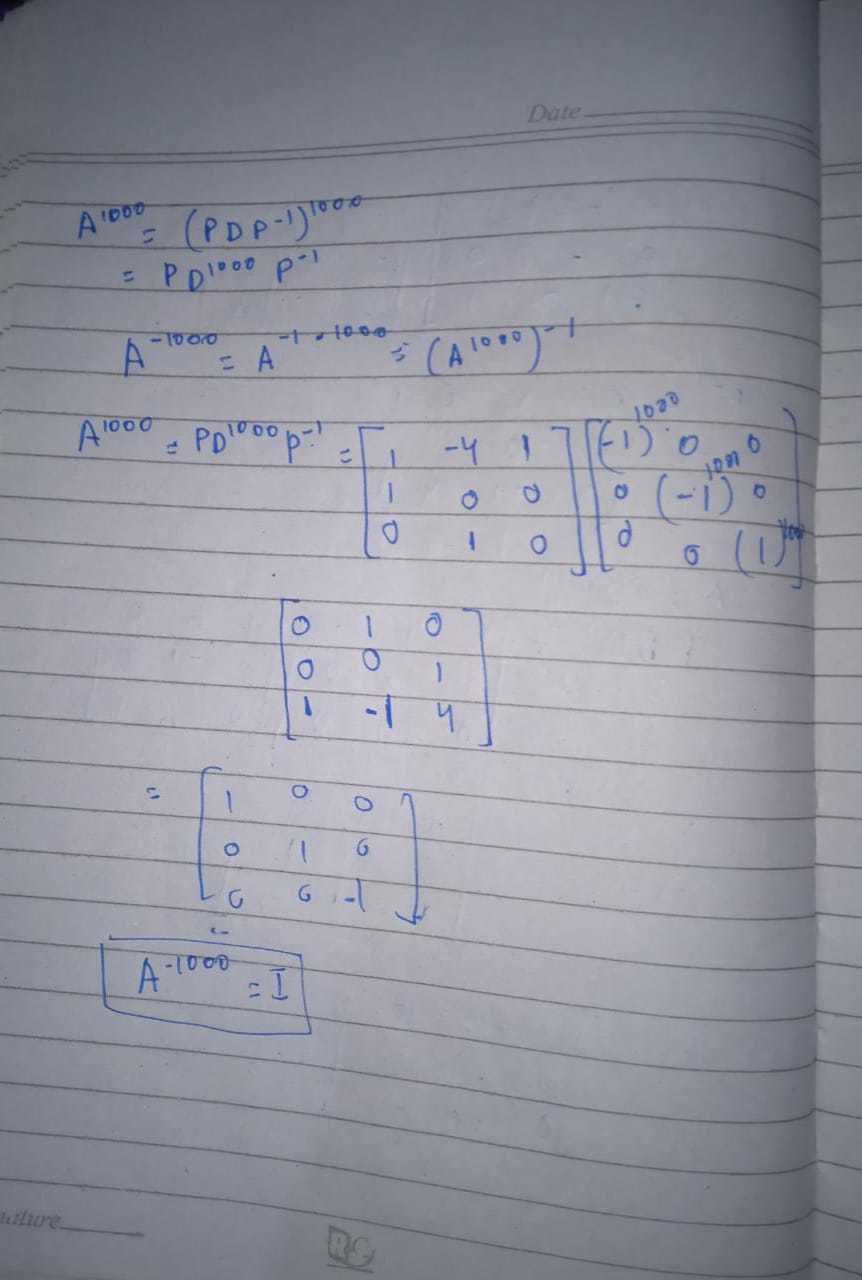 Date
A^1000 = (PDP^-1)^1000
= PD^1000 P^-1
A^-1000 = A^-1·1000 = (A^1000)^-1
A^1000 = PD^1000 P^-1 = [1 -4 1] [(-1)^1000 0 0]
[1 0 0] [0 (-1)^1000 0]
[0 1 0] [0 0 (1)^1000]
[0 1 0]
[0 0 1]
[1 -1 4]
= [1 0 0]
[0 1 0]
[0 0 -1]
A^-1000 = I
nature
RC